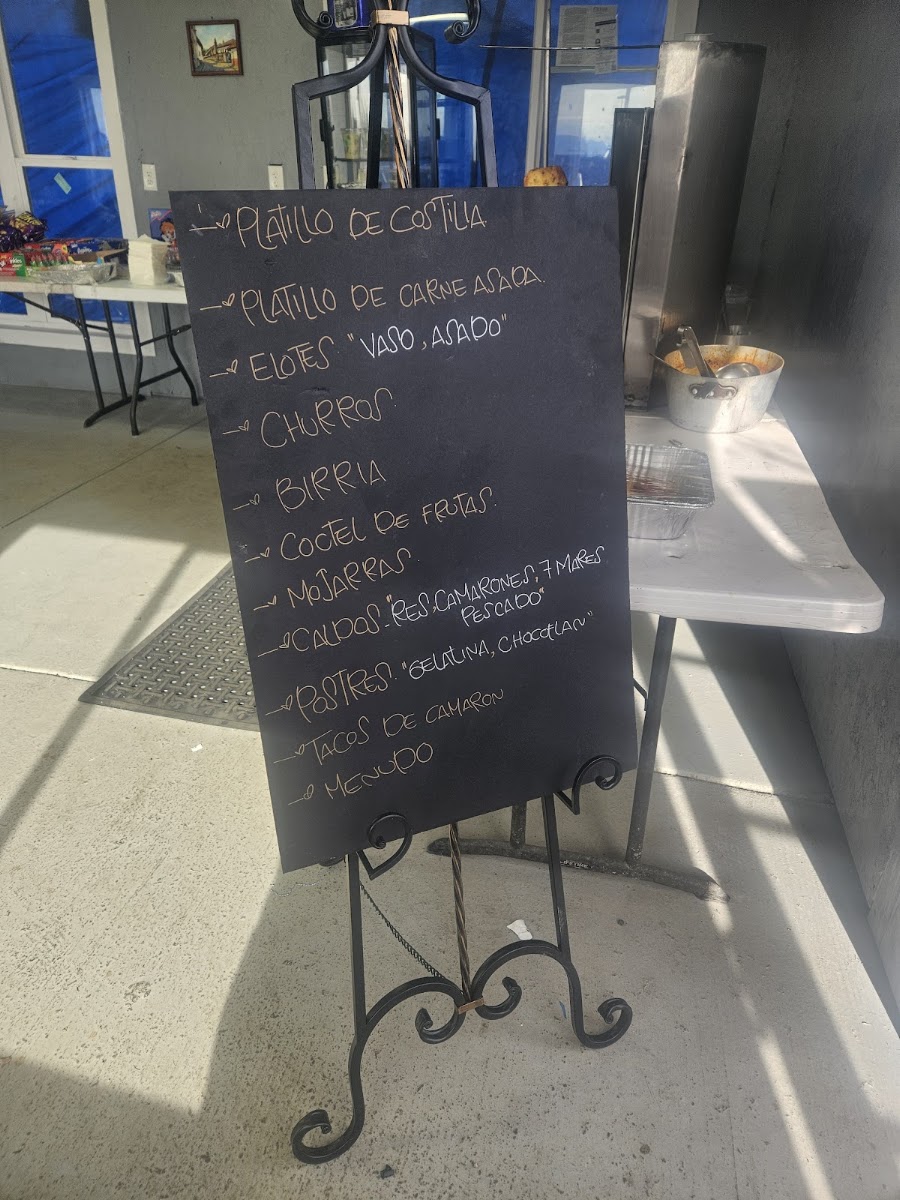 PLATILLO DE COSTILLA
PLATILLO DE CARNE ASADA.
ELOTES. "VASO, ASADO"
CHURROS.
BIRRIA
COCTEL DE FRUTAS.
MOJARRAS.
CALDOS. "RES. CAMARONES, 7 MARES
PESCADO"
POSTRES. "GELATINA, CHOCOFLAN"
TACOS DE CAMARON
MENUDO